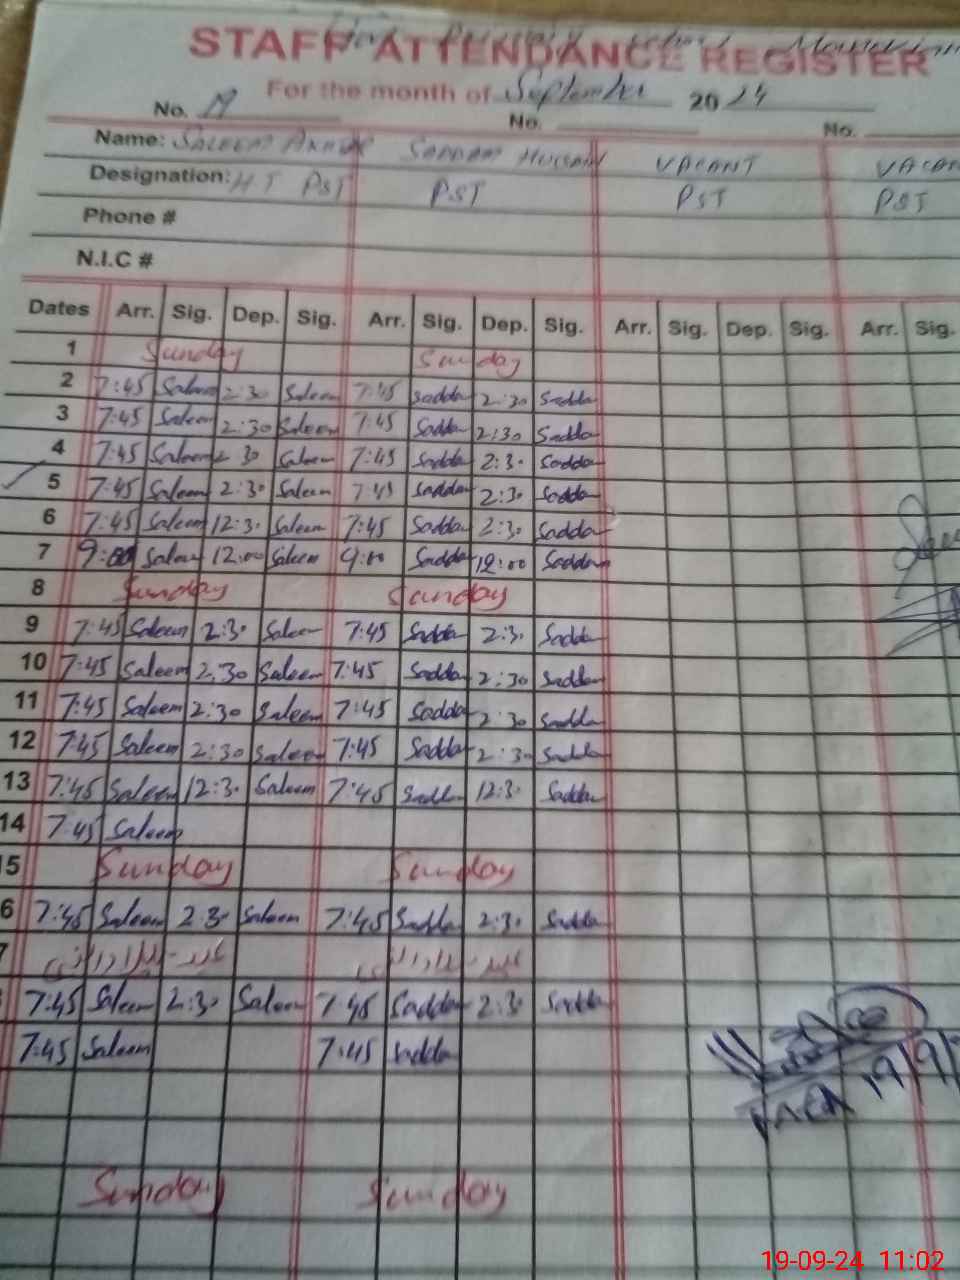 STAFF ATTENDANCE REGISTER
For the month of September 2024
No. 19 No. No.
Name: SALEEM SADDAM HUSSAIN VACANT
Designation: HT PST PST PST PST
Phone #
N.I.C #
Dates Arr. Sig. Dep. Sig. Arr. Sig. Dep. Sig. Arr. Sig. Dep. Sig. Arr. Sig.
1 Sunday Sunday
2 7:45 Saleem 2:30 Saleem 7:45 Sadda 2:30 Sadda
3 7:45 Saleem 2:30 Saleem 7:45 Sadda 2:30 Sadda
4 7:45 Saleem 2 30 Saleem 7:45 Sadda 2:3. Sadda
5 7:45 Saleem 2:30 Saleem 7:45 Sadda 2:30 Sadda
6 7:45 Saleem 12:3. Saleem 7:45 Sadda 2:30 Sadda
7 9:00 Saleem 12:00 Saleem 9:00 Sadda 12:00 Saddam
8 Sunday Sunday
9 7:45 Saleem 2:30 Saleem 7:45 Sadda 2:3. Sadda
10 7:45 Saleem 2:30 Saleem 7:45 Sadda 2:30 Sadda
11 7:45 Saleem 2:30 Saleem 7:45 Sadda 2:30 Sadda
12 7:45 Saleem 2:30 Saleem 7:45 Sadda 2:30 Sadda
13 7:45 Saleem 12:3. Saleem 7:45 Sadda 12:3. Sadda
14 7:45 Saleem
15 Sunday Sunday
6 7:45 Saleem 2:30 Saleem 7:45 Sadda 2:30 Sadda
7
7:45 Saleem 2:30 Saleem 7:45 Sadda 2:30 Sadda
7:45 Saleem 7:45 Sadda
19/9/
Sunday Sunday
19-09-24 11:02